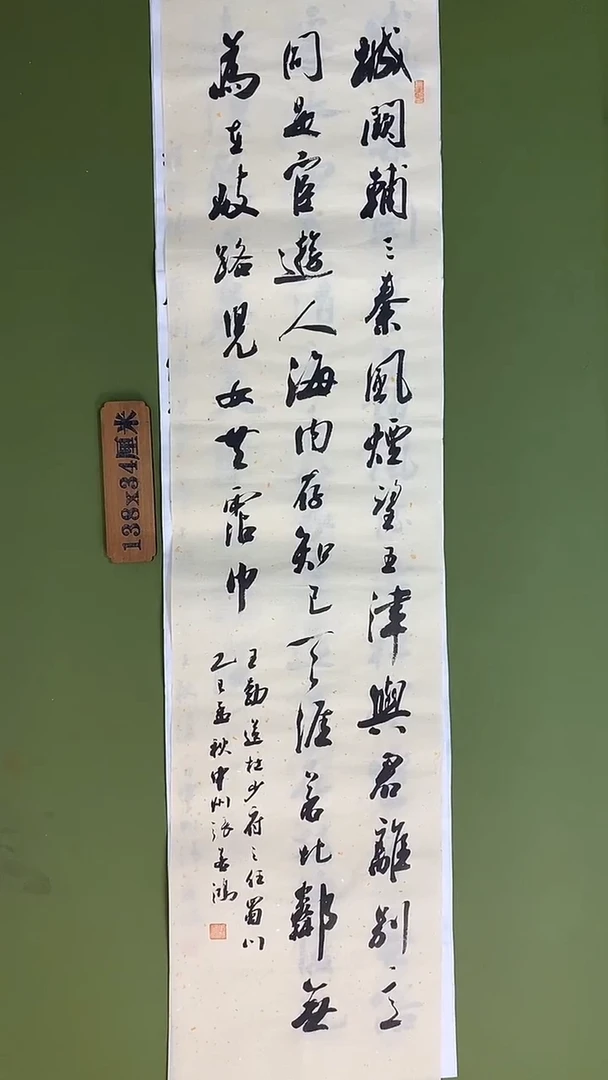 城闕輔三秦風煙望五津與君離別意
同是宦遊人海内存知己天涯若比鄰無
為在歧路兒女共霑巾
王勃送杜少府之任蜀川
乙巳孟秋中州张善鴻
138x34厘米